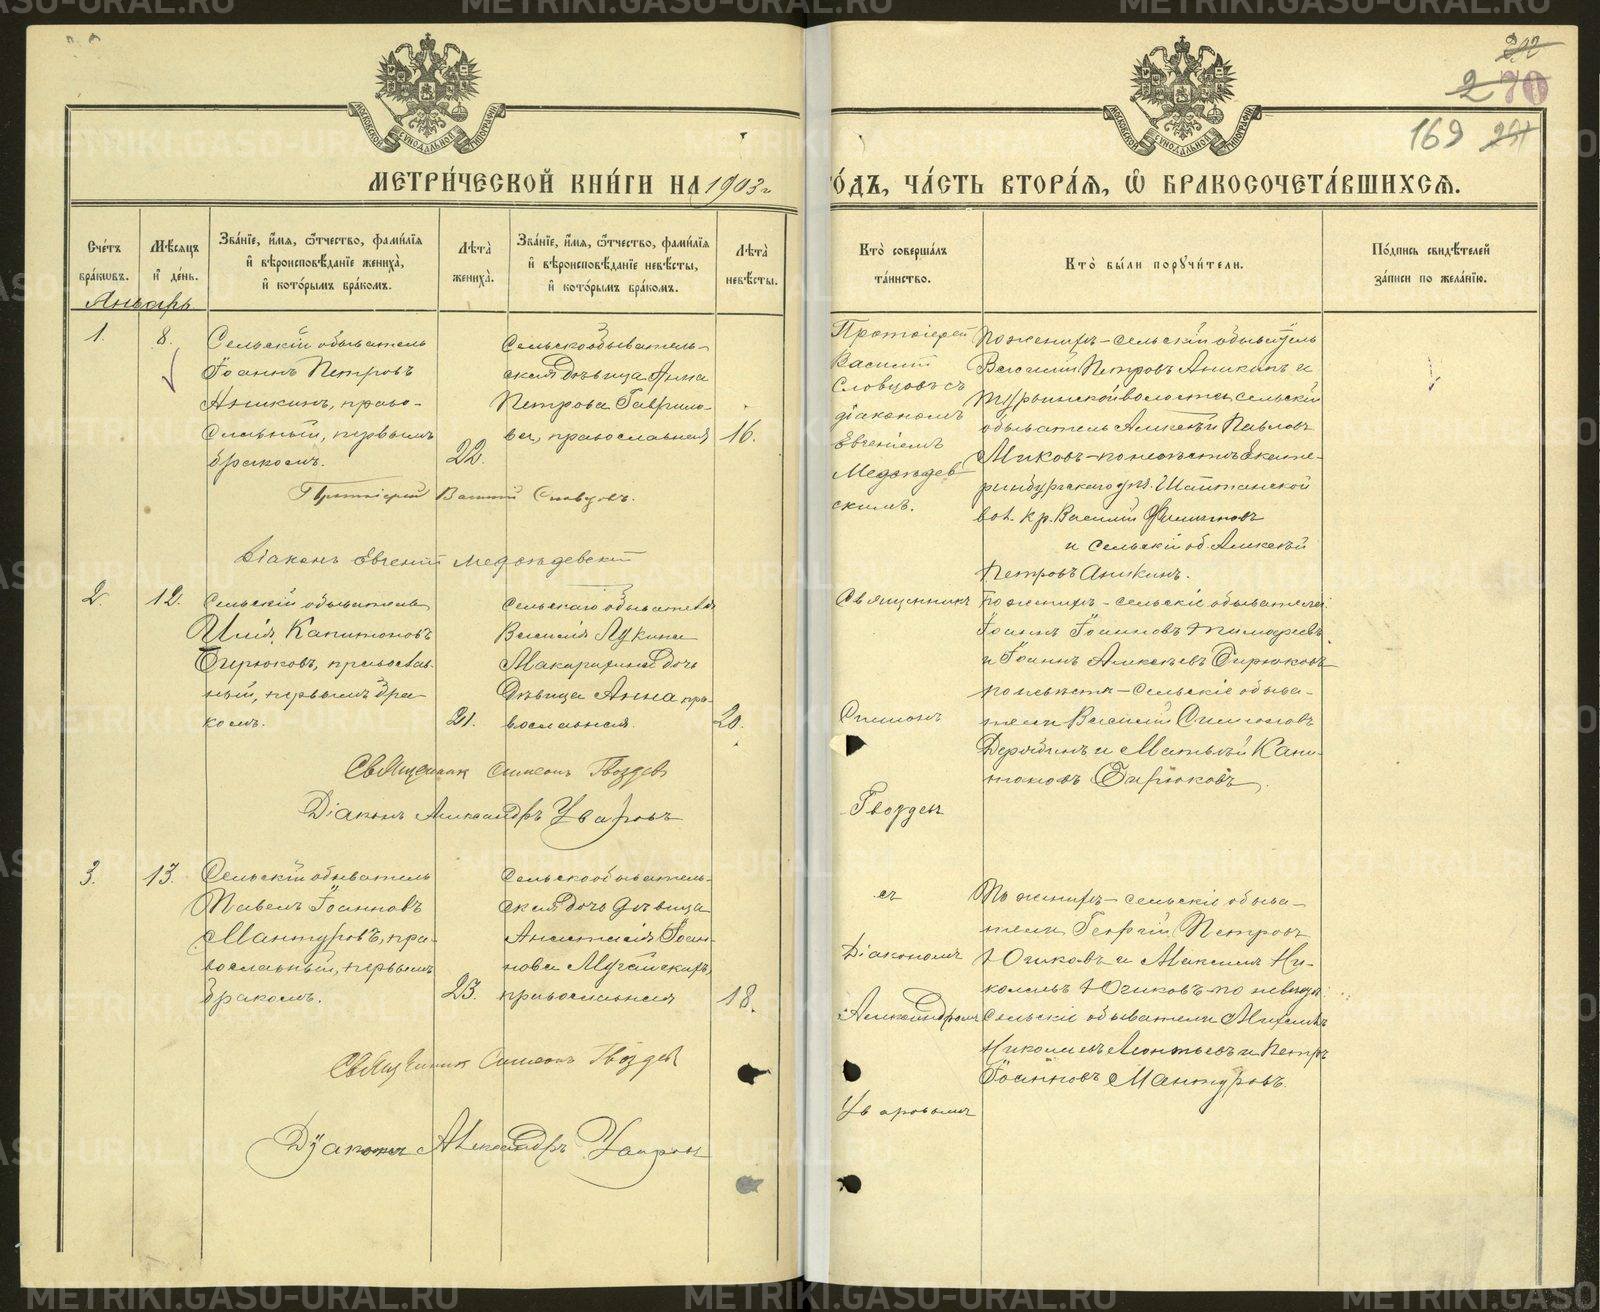 МЕТРИ́ЧЕСКОЙ КНИ́ГИ НА 1903 г
ГО́ДЪ, ЧА́СТЬ ВТОРА́Я, Ѽ БРАКОСОЧЕТА́ВШИХСЯ.
МОСКОВСКОЙ СѴНОДАЛЬНОЙ ТИПОГРАФІИ
МОСКОВСКОЙ СѴНОДАЛЬНОЙ ТИПОГРАФІИ
2
70
169
Сче́тъ
бра́кѡвъ.
Мѣ́сяцъ
и҆ де́нь.
Зва́нїе, и҆́мя, ѻ҆́тчество, фами́лїя
и҆ вѣроисповѣ́данїе жениха̀,
и҆ кото́рымъ бра́комъ.
Лѣ́та̀
жениха̀.
Зва́нїе, и҆́мя, ѻ҆́тчество, фами́лїя
и҆ вѣроисповѣ́данїе невѣ́сты,
и҆ кото́рымъ бра́комъ.
Лѣ́та̀
невѣ́сты.
Кто̀ соверша́лъ
та́инство.
Кто̀ бы́ли пору́чи́тели.
По́дпись свидѣ́телей
за́писи по жела́нїю.
Январь
1.
8.
Сельскій обыватель
Іоаннъ Петровъ
Аникинъ, право-
славный, первымъ
бракомъ.
22.
Сельскообыватель-
ская дѣвица Анна
Петрова Гаврило-
ва, православная
16.
Протоіерей
Василій
Словцовъ съ
діакономъ
Евгеніемъ
Медвѣдев-
скимъ.
По женихѣ – сельскій обыватель
Василій Петровъ Аникинъ и
Турьинской волости, сельскій
обыватель Алексѣй Павловъ
Миковъ – по невѣстѣ Екате-
ринбургскаго уѣз. Шайтанской
вол. кр. Василій Филиповъ
и сельскій об. Алексѣй
Петровъ Аникинъ.
Протоіерей Василій Словцовъ.
Діаконъ Евгеній Медвѣдевскій
2.
12.
Сельскій обыватель
Илія Капитоновъ
Бирюковъ, православ-
ный, первымъ бра-
комъ.
21.
Сельскаго обывателя
Василія Лукина
Макарихина дочь
дѣвица Анна пра-
вославная.
20.
Священникъ
Симеонъ
Гвоздевъ
По женихѣ – сельскіе обыватели
Іоаннъ Іоанновъ Тимофеевъ
и Іоаннъ Алексѣевъ Бирюковъ
по невѣстѣ – сельскіе обыва-
тели Василій Симеоновъ
Дерябинъ и Матвѣй Капи-
тоновъ Бирюковъ.
Священник Симеонъ Гвоздев
Діаконъ Александръ Уваровъ
3.
13.
Сельскій обыватель
Павелъ Іоанновъ
Мантуровъ, пра-
вославный, первымъ
бракомъ.
23.
Сельскообыватель-
ская дочь дѣвица
Анастасія Іоан-
нова
православная
18.
съ
Діакономъ
Александромъ
Уваровымъ
По женихѣ – сельскіе обыва-
тели Георгій Петровъ
Югиковъ и Максимъ Ни-
колаевъ Югиковъ – по невѣстѣ
Сельскіе обыватели Михаилъ
Николаевъ Леонтьевъ и Петръ
Іоанновъ Мантуровъ.
Священник Симеонъ Гвоздев
Діаконъ Александръ Уваровъ
METRIKI.GASO-URAL.RU